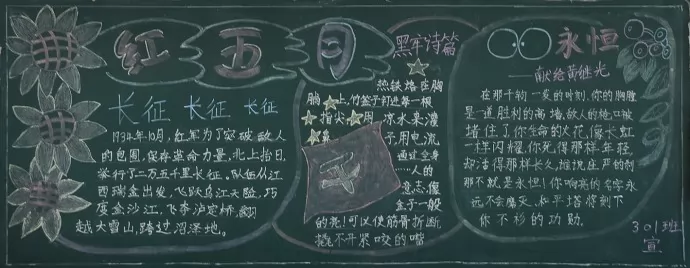 红五月
长征 长征 长征
1934年10月,红军为了突破敌人
的包围,保存革命力量,北上抗日,
举行了二万五千里长征。队伍从江
西瑞金出发,飞跃乌江天险,巧
度金沙江,飞夺泸定桥,翻
越大雪山,跨过沼泽地。
黑牢诗篇
热铁烙在胸
脯上,竹签子钉进每一根
指尖 用 凉水来灌
鼻 子,用电流
通过全身
……人的
意志像
金子一般
的亮!可以使筋骨折断
撬不开紧咬的嘴
永恒
——献给黄继光
在那千钧一发的时刻,你的胸膛
是一道胜利的高墙,敌人的枪口被
堵住了,你生命的火花,像长虹
一样闪耀,你死得那样年轻
却活得那样长久,谁说庄严的刹
那不就是永恒!你响亮的名字永
远不会磨灭,和平塔将刻下
你不朽的功勋。
301班
宣